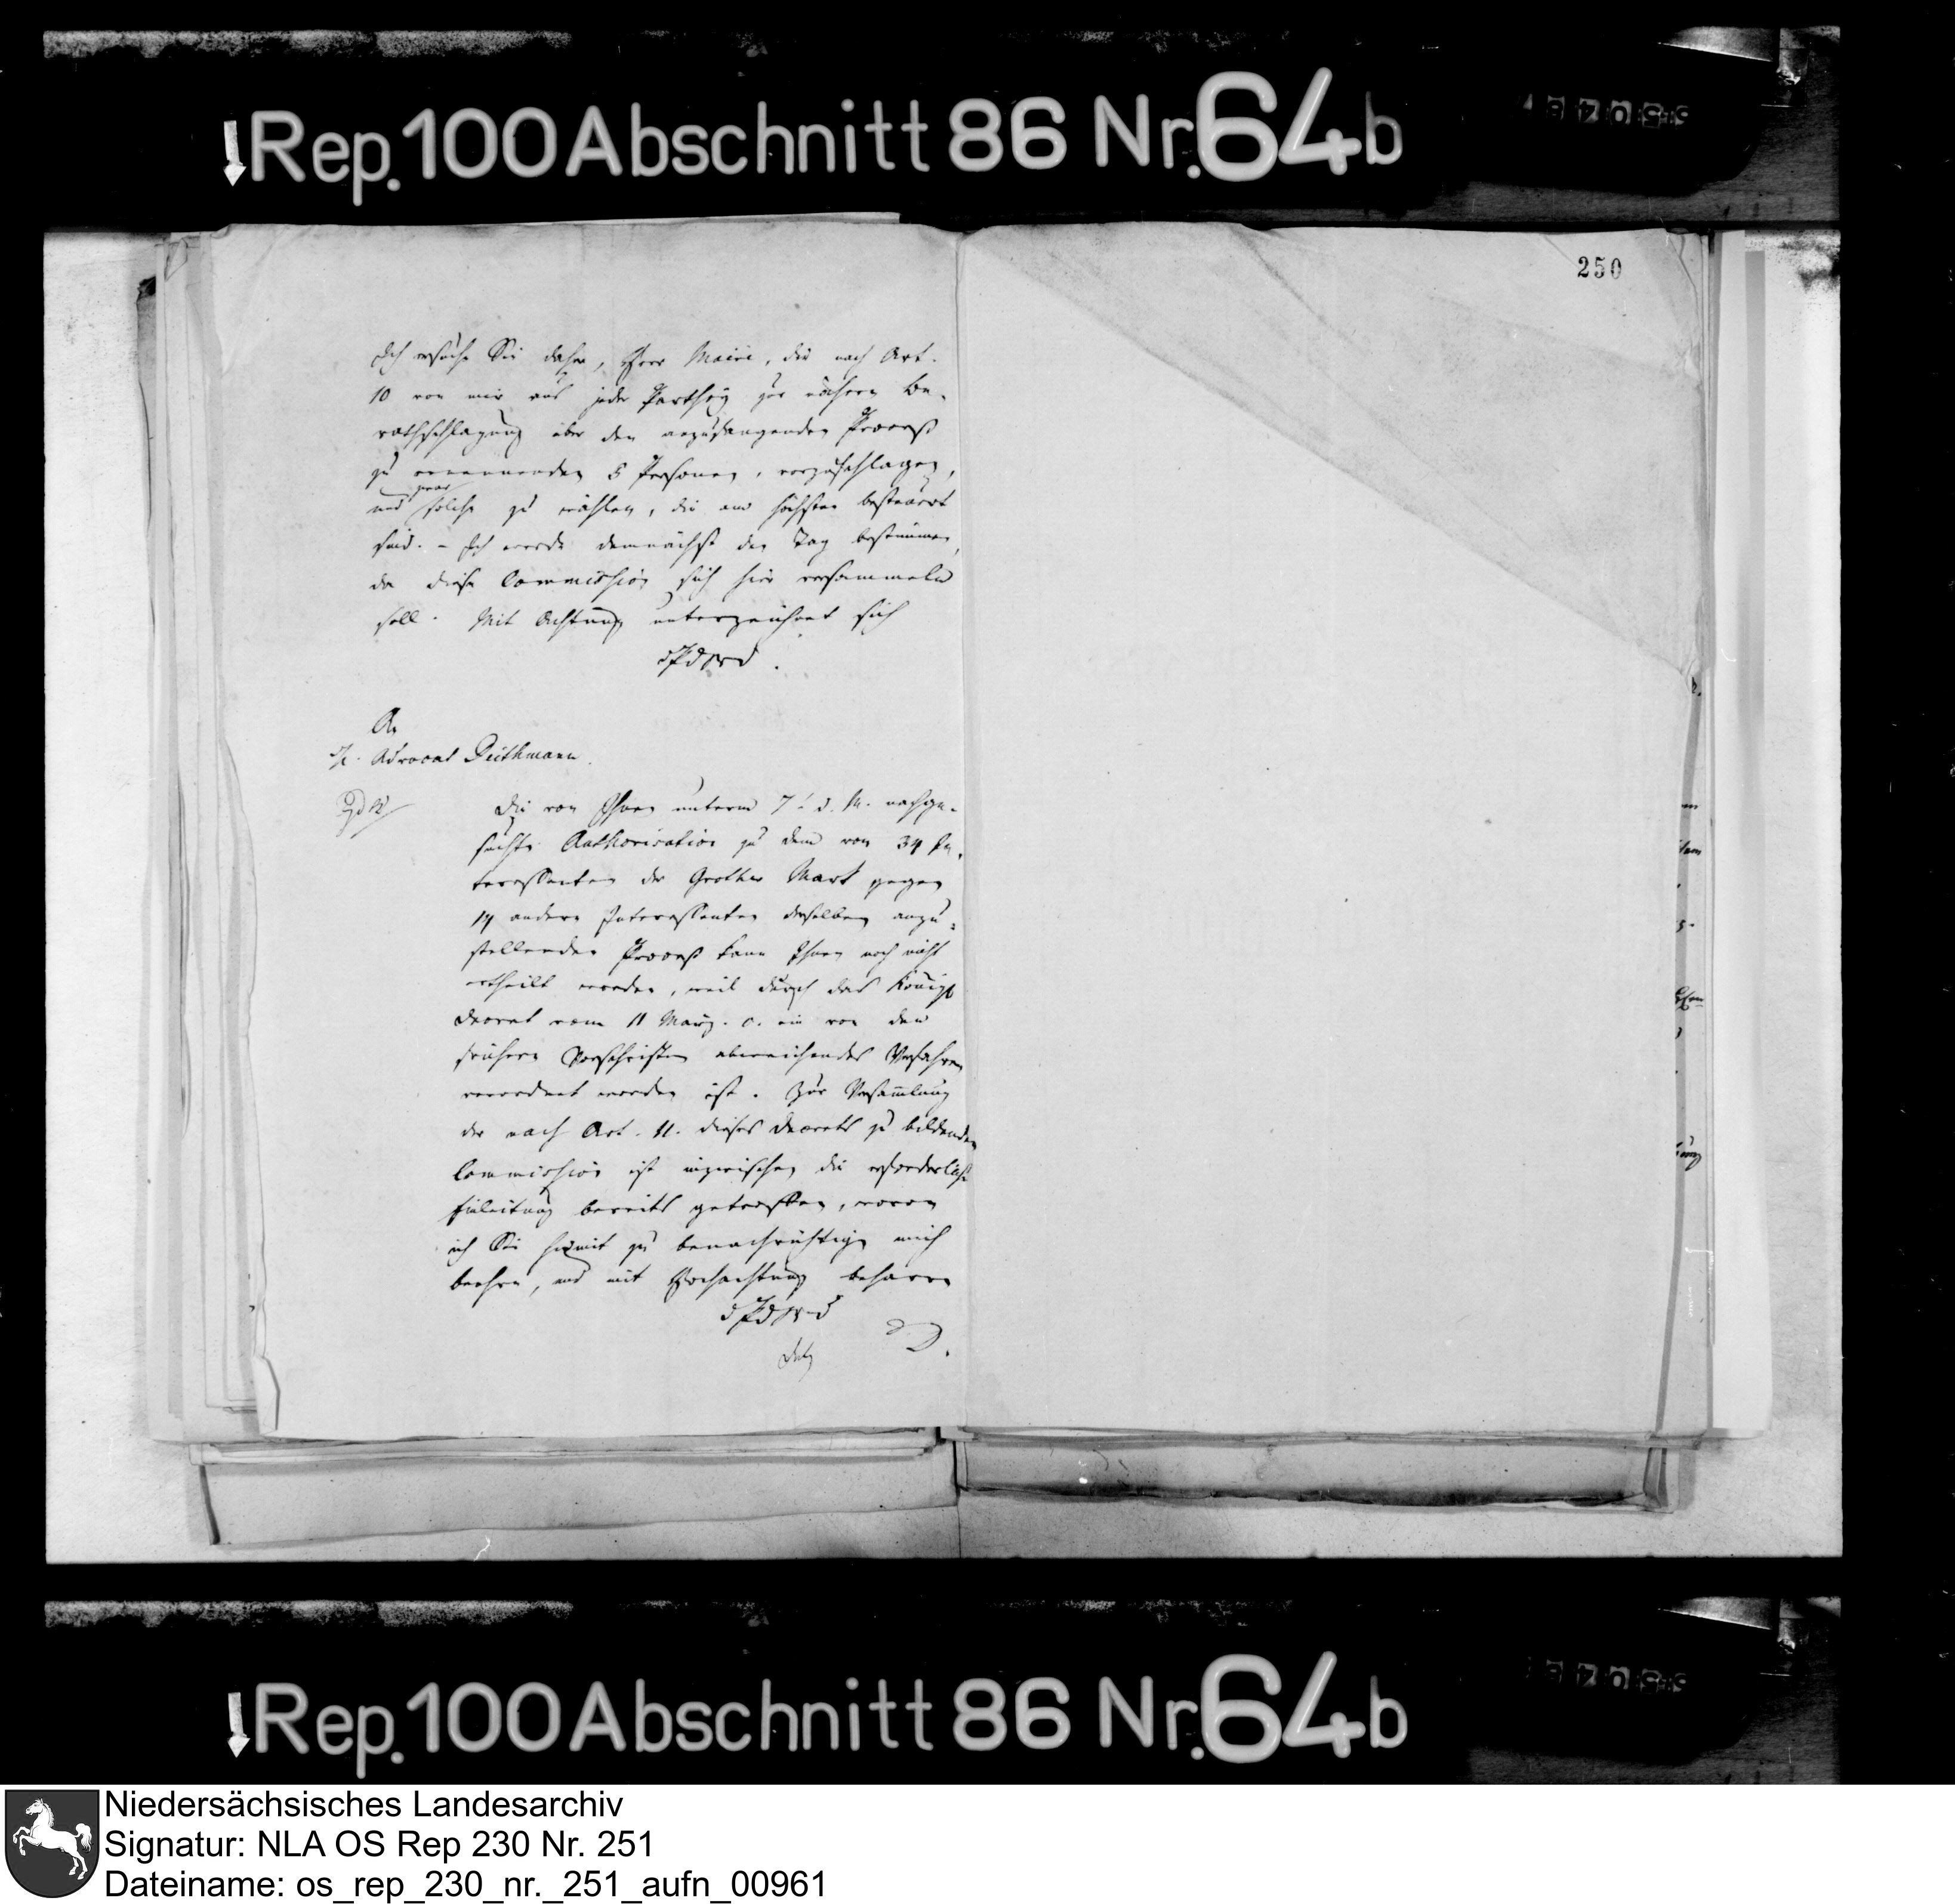 Rep. 100 Abschnitt 86 Nr. 64b
250
Ich ersuche Sie daher, Herr Maire, die nach Art.
10 von mir aus jeder Parthey zur nähern Be-
rathschlagung über den anzufangenden Proceß
zu ernennenden 5 Personen, vorzuschlagen,
und zwar solche zu wählen, die am höchsten besteuert
sind. – Ich werde demnächst den Tag bestimmen,
da diese Commission sich hier versammeln
soll. Mit Achtung unterzeichnet sich
An
H. Advocat Deithmann.
Die von Ihnen unterm 7. d. M. nachge-
suchte Authorisation zu dem von 34 In-
teressenten der Grother Mark gegen
14 andere Interessenten derselben anzu-
stellenden Proceß kann Ihnen noch nicht
ertheilt werden, weil durch das Königl.
Decret vom 11 März. c. ein von den
frühern Vorschriften abweichendes Verfahren
verordnet worden ist. Zur Versammlung
der nach Art. 11. dieses Decrets zu bildenden
Commission ist inzwischen die erforderliche
Einleitung bereits getroffen, wovon
ich Sie hiemit zu benachrichtigen mich
beehre, und mit Hochachtung beharre
Rep. 100 Abschnitt 86 Nr. 64b
Niedersächsisches Landesarchiv
Signatur: NLA OS Rep 230 Nr. 251
Dateiname: os_rep_230_nr._251_aufn_00961